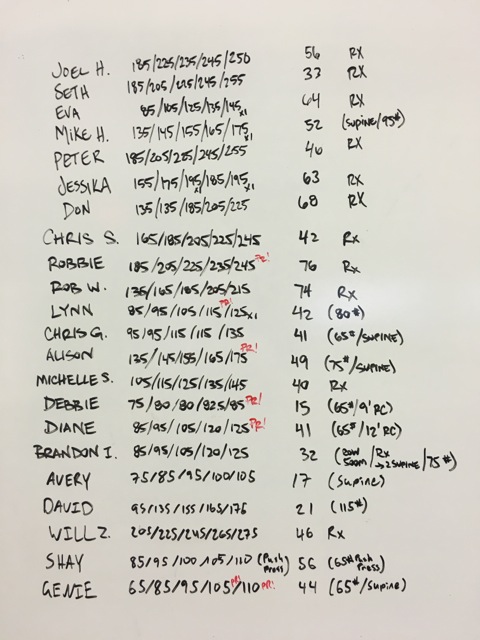 JOEL H. 185/225/235/245/250 56 RX
SETH 185/205/225/245/255 33 RX
EVA 85/105/125/135/145x1 64 RX
MIKE H. 135/145/155/165/175x1 52 (SUPINE/95#)
PETER 185/205/225/245/255 46 RX
JESSIKA 155/175/195x1/185/195x1 63 RX
DON 135/135/185/205/225 68 RX
CHRIS S. 165/185/205/225/245 42 Rx
ROBBIE 185/205/225/235/245 PR! 76 Rx
ROB W. 135/165/185/205/215 74 Rx
LYNN 85/95/105/115 PR!/125x1 42 (80#)
CHRIS G. 95/95/115/115/135 41 (65#/SUPINE)
ALISON 135/145/155/165/175 PR! 49 (75#/SUPINE)
MICHELLE S. 105/115/125/135/145 40 RX
DEBBIE 75/80/80/82.5/85 PR! 15 (65#/9' RC)
DIANE 85/95/105/120/125 PR! 41 (65#/12' RC)
BRANDON I. 85/95/105/120/125 32 (ROW 500M/RX → 2 SUPINE/75#)
AVERY 75/85/95/100/105 17 (Supine)
DAVID 95/135/155/165/175 21 (115#)
WILL Z. 205/225/245/265/275 46 RX
SHAY 85/95/100/105/110 (Push Press) 56 (65# Push Press)
GENIE 65/85/95/105 PR!/110 PR! 44 (65#/Supine)